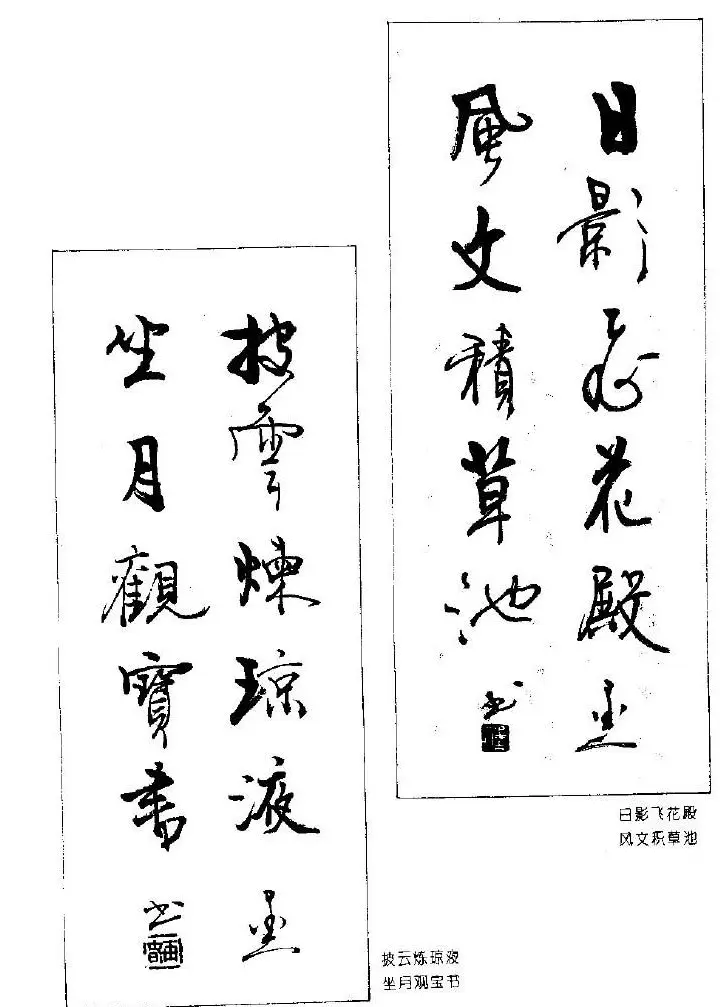 日影飞花殿
風文積草池
书
日影飞花殿
风文积草池
披雲煉琼液
坐月觀寳書
书
披云炼琼液
坐月观宝书